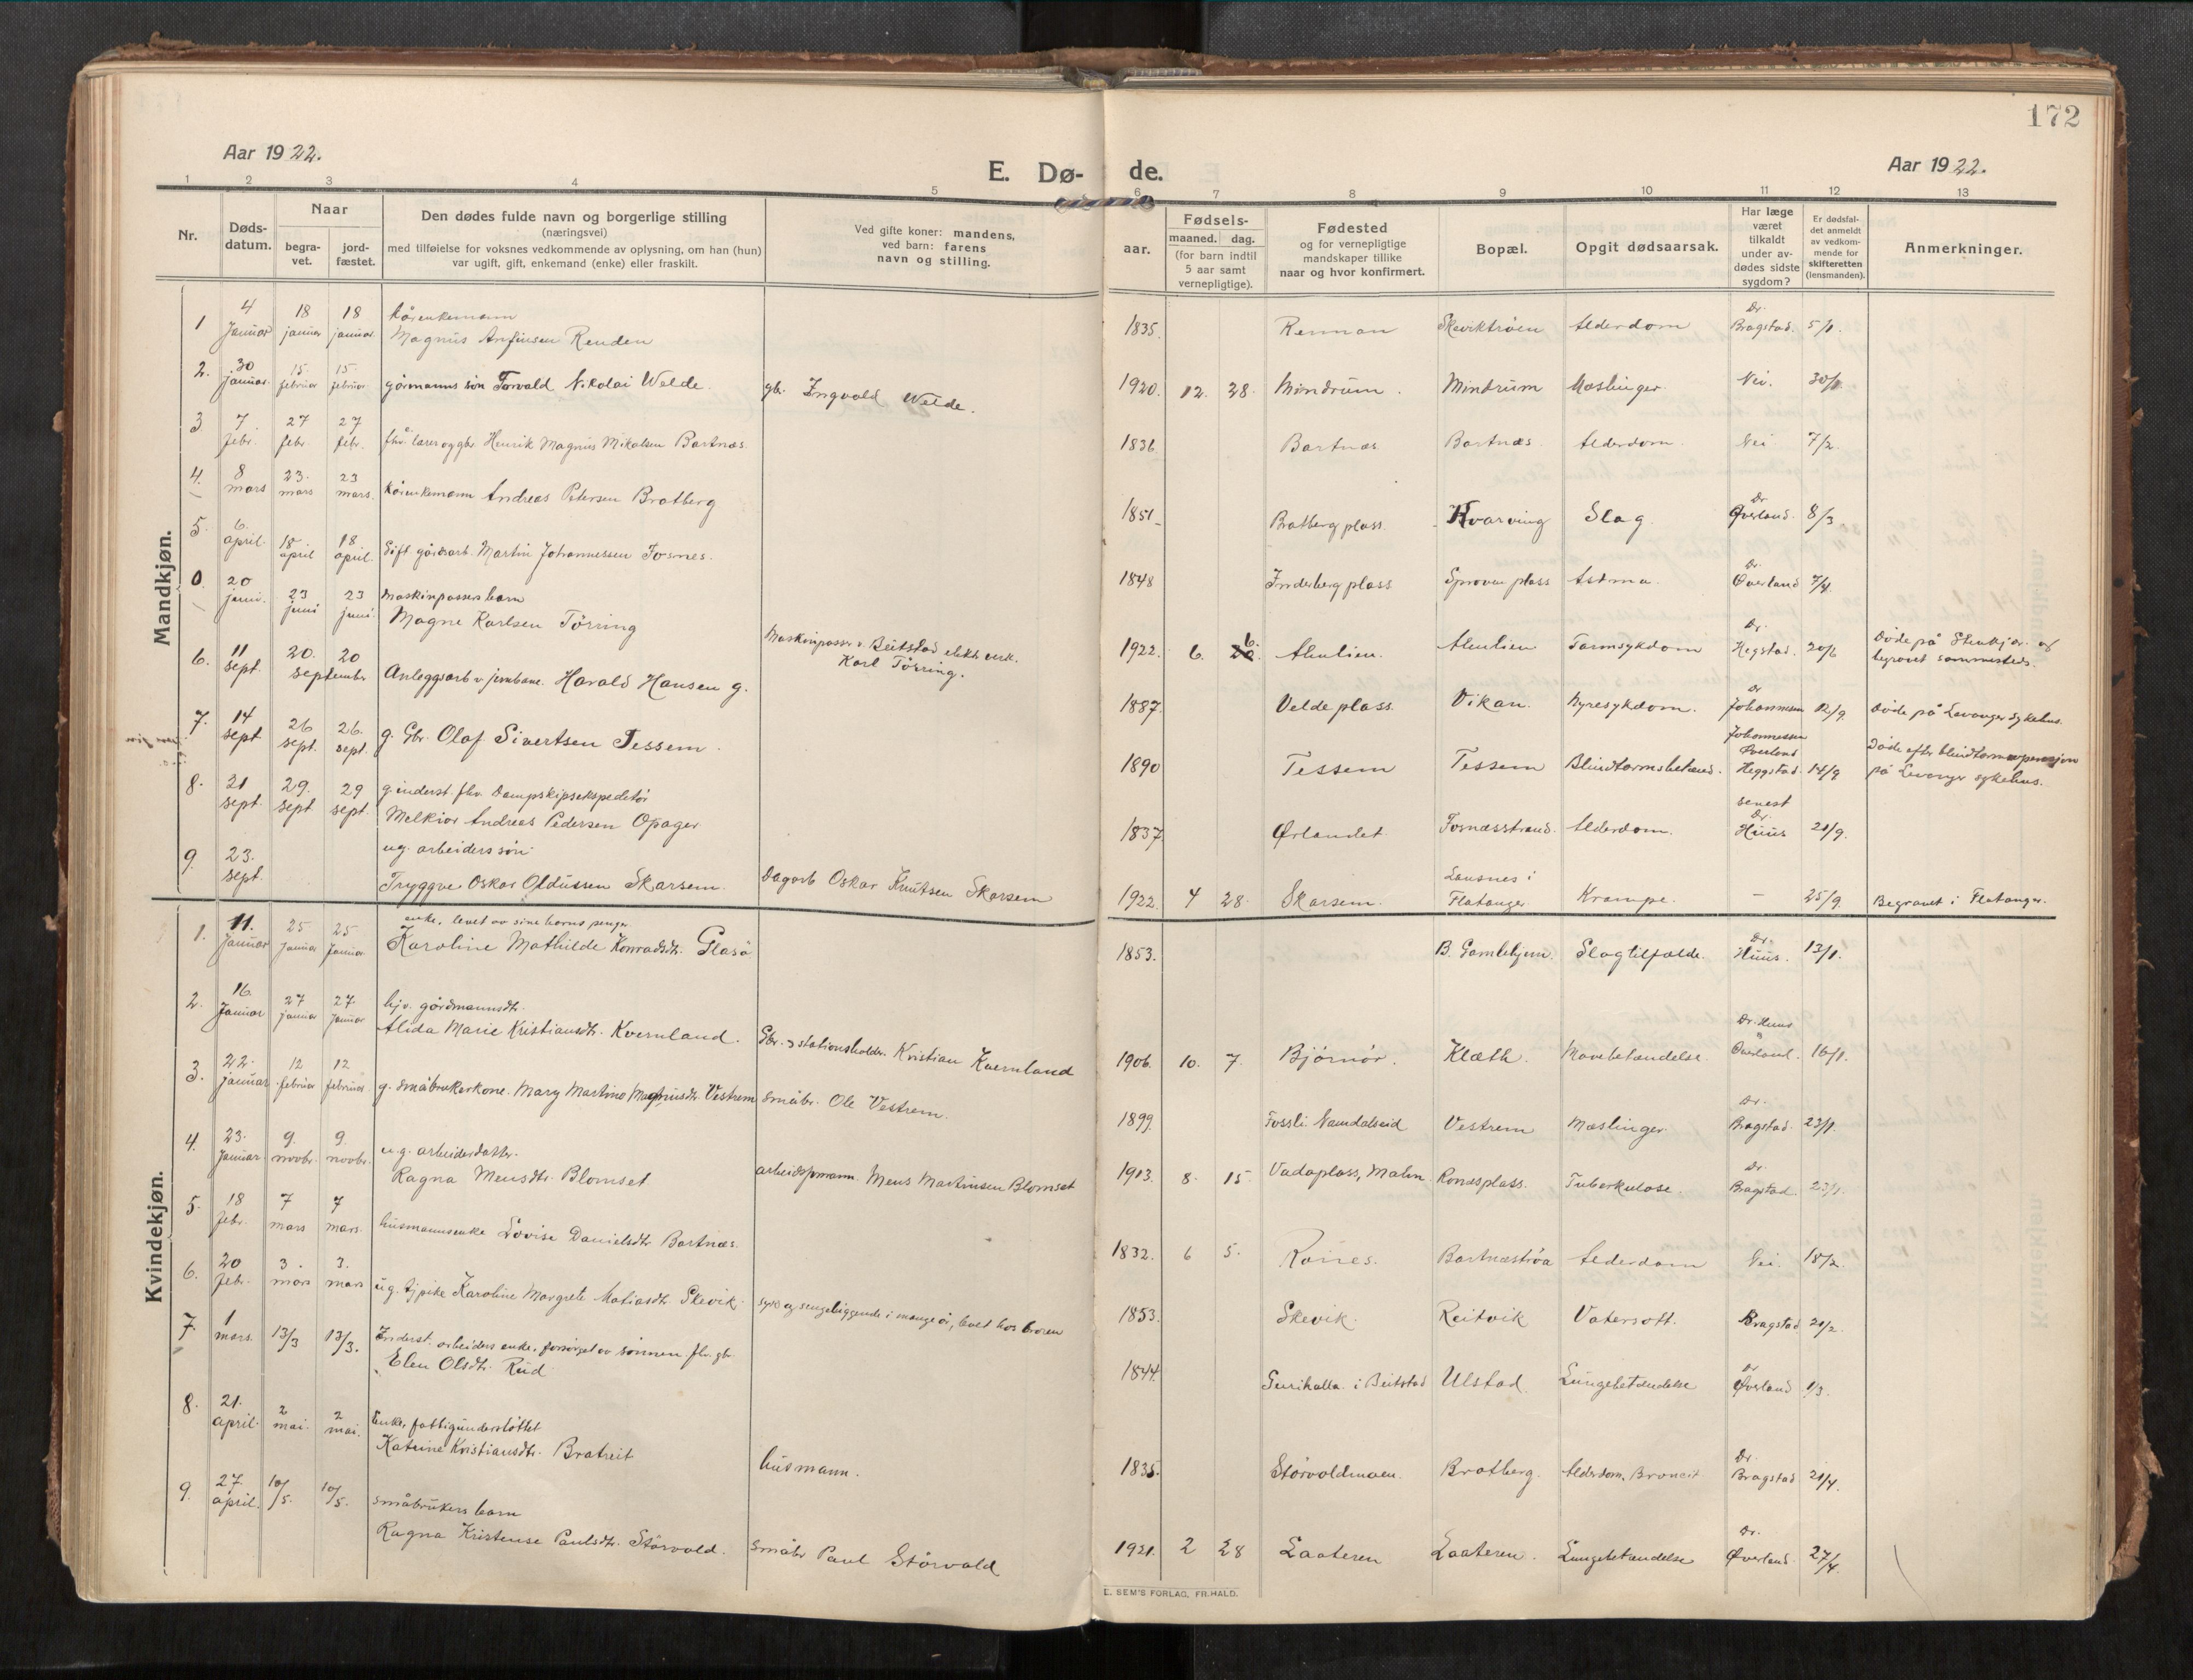 172
Aar 1922.
E. Dø- de.
Aar 1922.
1 2 3 4 5 6 7 8 9 10 11 12 13
Nr.
Døds-
datum.
Naar
begra-
vet.
jord-
fæstet.
Den dødes fulde navn og borgerlige stilling
(næringsvei)
med tilføielse for voksnes vedkommende av oplysning, om han (hun)
var ugift, gift, enkemand (enke) eller fraskilt.
Ved gifte koner: mandens,
ved barn: farens
navn og stilling.
Fødsels-
aar. maaned. dag.
(for barn indtil
5 aar samt
vernepligtige).
Fødested
og for vernepligtige
mandskaper tillike
naar og hvor konfirmert.
Bopæl.
Opgit dødsaarsak.
Har læge
været
tilkaldt
under av-
dødes sidste
sygdom?
Er dødsfal-
det anmeldt
av vedkom-
mende for
skifteretten
(lensmanden).
Anmerkninger.
Mandkjøn.
1 4 Januar 18 januar 18 januar kårenkemann
Magnus Arnfinsen Renden 1835. Rennan Skeviktrøen Alderdom Dr. Bragstad. 5/1.
2. 30 januar. 15. februar 15. februar gårmanns søn Torvald Nikolai Welde. gbr. Ingvald Welde. 1920. 12. 28. Mindrum. Mindrum Mæslinger Nei. 30/1.
3 7. febr. 27 febr. 27 febr. fhv. lærer og gbr. Henrik Magnus Mikalsen Bartnæs 1836. Bartnæs. Bartnæs. Alderdom. Nei 7/2.
4. 8 mars 23. mars 23 mars. kårenkemann Andreas Petersen Bratberg 1851 Bratberg plass. Kvarving Slag. Dr. Øverland. 8/3
5. 6. april. 18 april 18 april. Gift gårdsarb. Martin Johannessen Fosnes. 1848 Inderberg plass Sprovas plass Astma. Dr. Øverland 7/4.
0. 20 juni. 23 juni 23 juni. Maskinpassers barn
Magne Karlsen Törring Maskinpasser v. Beitstad elektr. verk.
Karl Törring. 1922. 6. 6. Almlien. Almlien Tarmsykdom Dr. Hegstad. 20/6 Døde på Stenkjær og
begravet sammesteds.
6. 11 sept. 20. 20 september Anleggsarb. v. jernbane. Harald Hansen g. 1887. Velde plass. Vikan. Nyresykdom. Dr Johannesen 12/9. Døde på Levanger sykehus.
7. 14 sept 26 sept. 26. sept. g. Gbr. Olaf Sivertsen Tessem. 1890 Tessem Tessem Blindtarmsbetænd. Johannessen
Øverland
Heggstad. 14/9 Døde efter blindtarmoperasjon
på Levanger sykehus.
8. 21 sept. 29. sept. 29 sept. g. inderst. fhv. Dampskipsekspeditør
Melkior Andreas Pedersen Opager 1837. Ørlandet Fosnæsstrand. Alderdom. senest
Dr. Huus 21/9.
9. 23. sept. ug. arbeiders søn
Tryggve Oskar Oldussen Skarsem. Dagarb Oskar Knutsen Skarsem 1922. 4 28. Skarsem. Lausnes i
Flatanger Krampe. – 25/9. Begravet i Flatanger.
Kvindekjøn.
1. 11. Januar 25 januar 25 januar enke, levet av sine barns penger
Karoline Mathilde Konradsdtr. Glasö 1853. B. Gamlehjem. Slagtilfælde. Dr. Huus. 13/1.
2. 16. Januar 27 januar 27. januar hjv. gårdmannsdtr.
Alida Marie Kristiansdtr. Kvernland. Gbr. & stationsholder. Kristian Kvernland 1906. 10. 7. Bjørnör. Klæth. Mavebetændelse. Dr. Huus
Øverland. 16/1.
3. 22. januar 12 februar 12 februar g. småbrukerkone. Mary Martino Magnusdtr. Vestrem småbr. Ole Vestrem. 1899. Fossli. Namdalseid Vestrem Mæslinger Dr. Bragstad. 23/1.
4. 23. Januar 9. novbr. 9. novbr. ug. arbeiderdatter.
Ragna Mensdtr. Blomset arbeidsmann. Mens Martinsen Blomset 1913. 8. 15. Vadaplass, Malm. Ronæsplass. Tuberkulose. Dr. Bragstad. 23/1.
5. 18 febr. 7 mars 7 mars. husmannsenke Lovise Danielsdtr. Bartnæs. 1832. 6 5. Rönes. Bartnæströa Alderdom Nei. 18/2.
6. 20 febr. 3. mars 3. mars ug. tjpike Karoline Margrete Matiasdtr. Skevik. syk og sengeliggende i mange år, levet hos broren 1853. Skevik. Reitvik Vatersott. Bragstad 20/2.
7. 1 mars. 13/3 13/3. Inderst. arbeiders enke, forsörget av sönnen fhv. gbr.
Elen Olsdtr. Rud 1844. Gurihalla i Beitstad Ulstad. Lungebetændelse Dr Øverland 1/3.
8. 21. april. 2 mai. 2 mai. Enke, fattigunderstøttet
Katrine Kristiansdtr. Bratreit husmann. 1835. Størvoldmoen. Bratberg. Alderdom, Bronkit Dr. Bragstad 21/4.
9. 27. april. 10/5. 10/5. småbrukers barn
Ragna Kristense Paulsdtr. Störvold. småbr Paul Störvold 1921. 2 28 Laateren Laateren. Lungebetændelse Dr. Øverland. 27/4.
E. SEM'S FORLAG, FR.HALD.